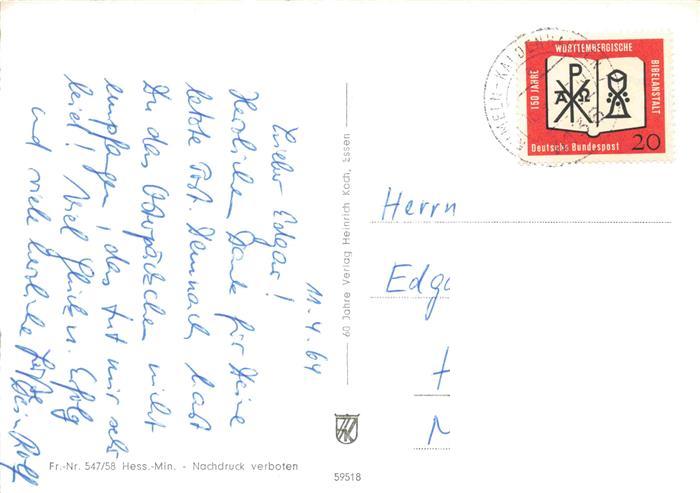 11.4.64
Lieber Edgar!
Herzlichen Dank für Deine
letzte Post. Demnach hast
Du das Osterpäckchen nicht
empfangen, das tut mir sehr
leid! Viel Glück u. Erfolg
und viele herzliche Grüße Dein Rolf
Fr.-Nr. 547/58 Hess.-Min. - Nachdruck verboten
60 Jahre Verlag Heinrich Koch, Essen
59518
150 JAHRE WÜRTTEMBERGISCHE BIBELANSTALT
P
Α Ω
Deutsche Bundespost 20
Herrn
Edga